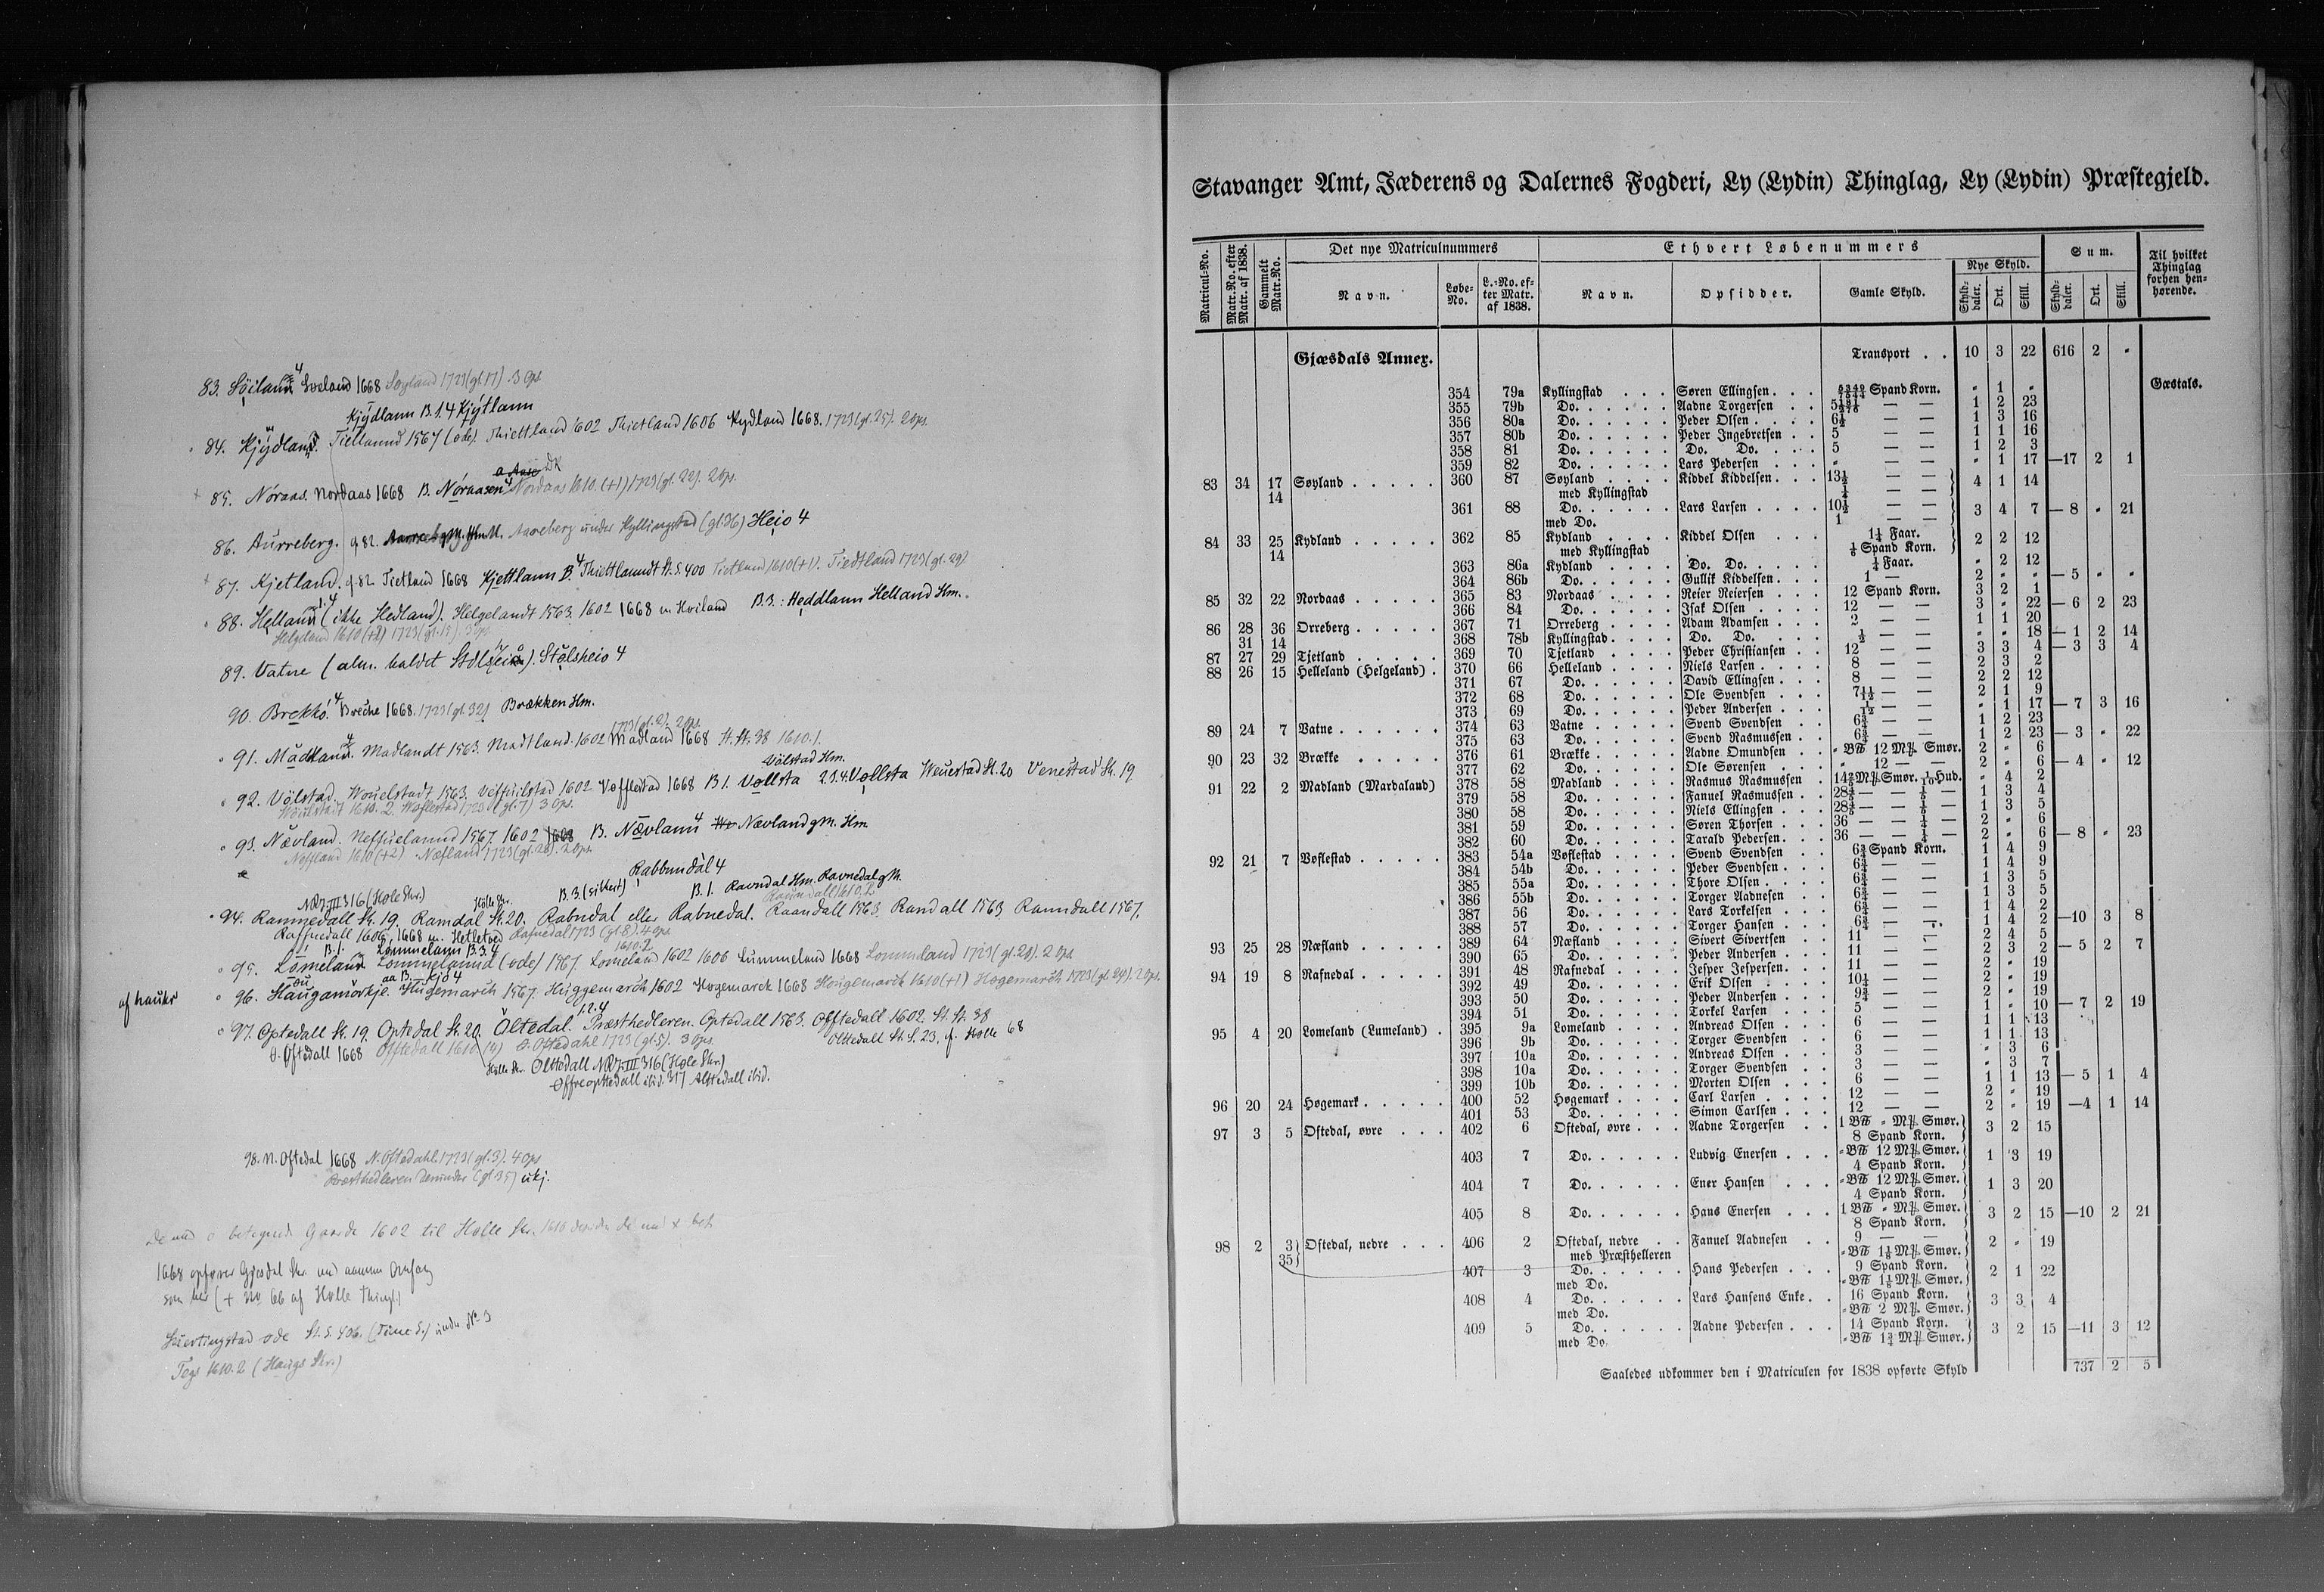 83. Söilann 4 Soeland 1668 Søyland 1723 (gl. 17). 3 Ops.
Kjỹdlann B. 1. 4 Kjỹtlann
84. Kjỹdland. Tiellannd 1567 (øde). Thiettland 1602 Thietland 1606 Kydland 1668. 1723 (gl. 25). 2 Ops.
85. Nóraas. Nordaas 1668 B. Nóraasen 4 Nordaas 1610. (+1) 1723 (gl. 22). 2 Ops.
86. Aurreberg. g 82. Aareberg under Kyllingstad (gl. 36) Heio 4
87. Kjetland. g 82. Tietland 1668 Kjettlann B. 4 Thiettlanndt St. S. 400 Tietland 1610 (+1). Tiedtland 1723 (gl. 29)
88. Hellann 1. 4 (ikke Hedland). Helgelandt 1563. 1602 1668 m. Hviland B. 3.: Heddlann Helland Hm.
Helgeland 1610 (+2) 1723 (gl. 15). 3 Ops.
89. Vatne (alm. kaldet Stólsheio). Stølsheio 4
90. Brekko. 4 Breche 1668. 1723 (gl. 32) Brækken Hm.
1723 (gl. 2). 2 Ops.
91. Mådland. Madlandt 1563. Madtland. 1602 Madland 1668 St. St. 38 1610. 1.
Völstad Hm.
92. Völstad. Wouelstadt 1563. 1602 Vofflestad 1668 B 1. Vollsta 2. 3. 4. Vollsta Weuestad St. 20 Venestad St. 19
1610. 2. Woflestad 1723 (gl. 7) 3 Ops.
93. Nævland. Neffuelannd 1567. 1602 1668 B. Nævlann 4 Nævland gM. Hm
Nefland 1610 (+2) Næfland 1723 (gl. 28). 2 Ops.
Rabbundal 4
NRJ. III 316 (Hole Skr.) Hölle Skr. B. 3. (sikkert) B. 1. Ravndal Hm. Ravnedal gM.
94. Ramnedall St. 19, Ramdal St. 20. Rabndal eller Rabnedal. Raandall 1563. Randall 1563 Ranndall 1567.
Raffnedall 1606, 1668 m. Hetletved Rafnedal 1723 (gl. 8). 4 Ops.
B. 1. Lommelann B. 3. 4 1610. 2
95. Lomeland Lommelannd (øde) 1567. Lomeland 1602 1606 Lummeland 1668 Lommland 1723 (gl. 20). 2 Ops
af haukr
96. Haugamörkje. Hugemarch 1567. Huggemarch 1602 Hogemarck 1668 Hougemarck 1610 (+1) Hogemarch 1723 (gl. 24). 2 Ops.
1. 2. 4
97. Optedall St. 19. Optedal St. 20. Öltedal. Præsthedleren. Optedall 1563. Offtedall 1602. St. St. 38
Ø. Oftedall 1668 Offtedall 1610 (4) Ø. Oftedahl 1723 (gl. 5). 3 Ops. Olttedall St. S. 23, jf. Hølle 68
Hølle Skr. Olttedall NRJ. III 316 (Hole Skr.)
Øffreopttedall ibid. 317 Alttedall ibid.
98. N. Oftedal 1668 N. Oftedahl 1723 (gl. 3). 4 Ops
Præsthedleren derunder (gl. 35) ukj.
De med o betegnede Gaarde 1602 til Hølle Skr. 1610
1668 opfører Gjesdal Skr. med samme Omfang
som her (+ No 66 af Hølle Thingl.)
øde St. S. 436. (Time S.) under No 3
Tegs 1610. 2 (Haugs Skr.)
Stavanger Amt, Jæderens og Dalernes Fogderi, Ly (Lydin) Thinglag, Ly (Lydin) Præstegjeld.
Matricul-No. | Matr.No. efter Matr. af 1838. | Gammelt Matr.No. | Det nye Matriculnummers | Ethvert Løbenummers | Sum. | Til hvilket Thinglag forhen henhørende.
Navn. | Løbe-No. | L.-No. efter Matr. af 1838. | Navn. | Opsidder. | Gamle Skyld. | Nye Skyld. | Skylddaler. | Ort. | Skill. | Skylddaler. | Ort. | Skill.
Gjæsdals Annex. Transport . . 10 3 22 616 2 "
354 79a Kyllingstad . . . Søren Ellingsen . . . Spand Korn. " 1 " Gæstals.
355 79b Do. . . . . . Aadne Torgersen . . — — 1 2 23
356 80a Do. . . . . . Peder Olsen . . . . 6½ — — 1 3 16
357 80b Do. . . . . . Peder Ingebretsen . . 5 — — 1 1 16
358 81 Do. . . . . . Do. Do. . . . 5 — — 1 2 3
359 82 Do. . . . . . Lars Pedersen . . . " — — " 1 17 —17 2 1
83 34 17 Søyland . . . . . 360 87 Søyland . . . . Kiddel Kiddelsen . . . 13½ — — 4 1 14
14 med Kyllingstad ¼ — —
361 88 Do. . . . . . Lars Larsen . . . . 10½ — — 3 4 7 — 8 " 21
med Do. 1 — —
84 33 25 Kydland . . . . . 362 85 Kydland . . . . Kiddel Olsen . . . 1¼ Faar. 2 2 12
14 med Kyllingstad ⅙ Spand Korn.
363 86a Kydland . . . . Do. Do. . . . . ¼ Faar. " 2 12
364 86b Do. . . . . . Gullik Kiddelsen . . . 1 — 2 " " — 5 " "
85 32 22 Nordaas . . . . . 365 83 Nordaas . . . . Reier Reiersen . . . 12 Spand Korn. 3 2 1
366 84 Do. . . . . . Isak Olsen . . . . 12 — — 3 " 22 — 6 2 23
86 28 36 Orreberg . . . . . 367 71 Orreberg . . . . Adam Adamsen . . . 2 — — 1 1 20
31 14 368 78b Kyllingstad . . . . Do. Do. . . . ½ — — " " 18 — 1 2 14
87 27 29 Tjetland . . . . . 369 70 Tjetland . . . . Peder Christiansen . . 12 — — 3 3 4 — 3 3 4
88 26 15 Helleland (Helgeland) . 370 66 Helleland . . . . Niels Larsen . . . . 8 — — 2 3 2
371 67 Do. . . . . . David Ellingsen . . . 8 — — 2 2 12
372 68 Do. . . . . . Ole Svendsen . . . 7 11/12 — — 2 1 9
373 69 Do. . . . . . Peder Andersen . . . 1/12 — — " 1 17 — 7 3 16
89 24 7 Vatne . . . . . . 374 63 Vatne . . . . . Svend Svendsen . . 6¾ — — 1 2 23
375 63 Do. . . . . . Svend Rasmussen . . 6¾ — — 1 2 23 — 3 " 22
90 23 32 Brække . . . . . 376 61 Brække . . . . . Aadne Omundsen . . " B℔ 12 M℔ Smør. 2 " 6
377 62 Do. . . . . . Ole Sørensen . . . " 12 — — 2 " 6 — 4 " 12
91 22 2 Madland (Mardaland) 378 58 Madland . . . . Rasmus Rasmussen . 14⅖ M℔ Smør. 1/10 Hud. " 4 2
379 58 Do. . . . . . Fanuel Rasmussen . . 28⅘ — — ⅕ — 1 3 4
380 58 Do. . . . . . Niels Ellingsen . . . 28⅘ — — ⅕ — 1 3 5
381 59 Do. . . . . . Søren Thorsen . . . 36 — — ¼ — 2 " 6
382 60 Do. . . . . . Tarald Pedersen . . . 36 — — ¼ — 2 " 6 — 8 " 23
92 21 7 Voflestad . . . . . 383 54a Voflestad . . . . Svend Svendsen . . 6¾ Spand Korn. 1 4 9
384 54b Do. . . . . . Peder Svendsen . . . 6¾ — — 1 4 9
385 55a Do. . . . . . Thore Olsen . . . . 6¾ — — 1 3 5
386 55b Do. . . . . . Torger Aadnesen . . 6¾ — — 1 3 5
387 56 Do. . . . . . Lars Torkelsen . . . 6¾ — — 1 4 2
388 57 Do. . . . . . Torger Hansen . . . 6¾ — — 1 4 2 —10 3 8
93 25 28 Næfland . . . . . 389 64 Næfland . . . . Sivert Sivertsen . . 11 — — 2 4 5
390 65 Do. . . . . . Peder Andersen . . . 11 — — 2 3 2 — 5 2 7
94 19 8 Rafnedal . . . . . 391 48 Rafnedal . . . . Jesper Jespersen . . . 11 — — 2 " 19
392 49 Do. . . . . . Erik Olsen . . . . 10¼ — — 2 " 19
393 50 Do. . . . . . Peder Andersen . . . 9¾ — — 2 " 19
394 51 Do. . . . . . Torkel Larsen . . . 5 — — 1 " 10 — 7 2 19
95 4 20 Lomeland (Lumeland) . 395 9a Lomeland . . . . Andreas Olsen . . . 6 — — 1 1 13
396 9b Do. . . . . . Torger Svendsen . . 6 — — 1 1 13
397 10a Do. . . . . . Andreas Olsen . . . 3 — — " 3 6
398 10a Do. . . . . . Torger Svendsen . . 3 — — " 3 7
399 10b Do. . . . . . Morten Olsen . . . 6 — — 1 1 13 — 5 1 4
96 20 24 Høgemark . . . . . 400 52 Høgemark . . . . Carl Larsen . . . . 12 — — 2 " 19
401 53 Do. . . . . . Simon Carlsen . . . 12 — — 2 " 19 —4 1 14
97 3 5 Oftedal, øvre . . . 402 6 Oftedal, øvre . . . Aadne Torgersen . . 1 B℔ " M℔ Smør. 3 2 15
8 Spand Korn.
403 7 Do. . . . . . Ludvig Enersen . . . " B℔ 12 M℔ Smør. 1 3 19
4 Spand Korn.
404 7 Do. . . . . . Ener Hansen . . . " B℔ 12 M℔ Smør. 1 3 20
4 Spand Korn.
405 8 Do. . . . . . Hans Enersen . . . 1 B℔ " M℔ Smør. 3 2 15 —10 2 21
8 Spand Korn.
98 2 3 Oftedal, nedre . . . 406 2 Oftedal, nedre . . Fanuel Aadnesen . . 9 — — 2 " 19
35 med Præsthelleren " B℔ 1⅛ M℔ Smør.
407 3 Do. . . . . . Hans Pedersen . . . 9 Spand Korn. 2 1 22
med Do. " B℔ 1⅛ M℔ Smør.
408 4 Do. . . . . . Lars Hansens Enke . . 16 Spand Korn. 3 3 4
med Do. " B℔ 2 M℔ Smør.
409 5 Do. . . . . . Aadne Pedersen . . . 14 Spand Korn. 3 2 15 —11 3 12
med Do " B℔ 1¾ M℔ Smør.
Saaledes udkommer den i Matriculen for 1838 opførte Skyld 737 2 5